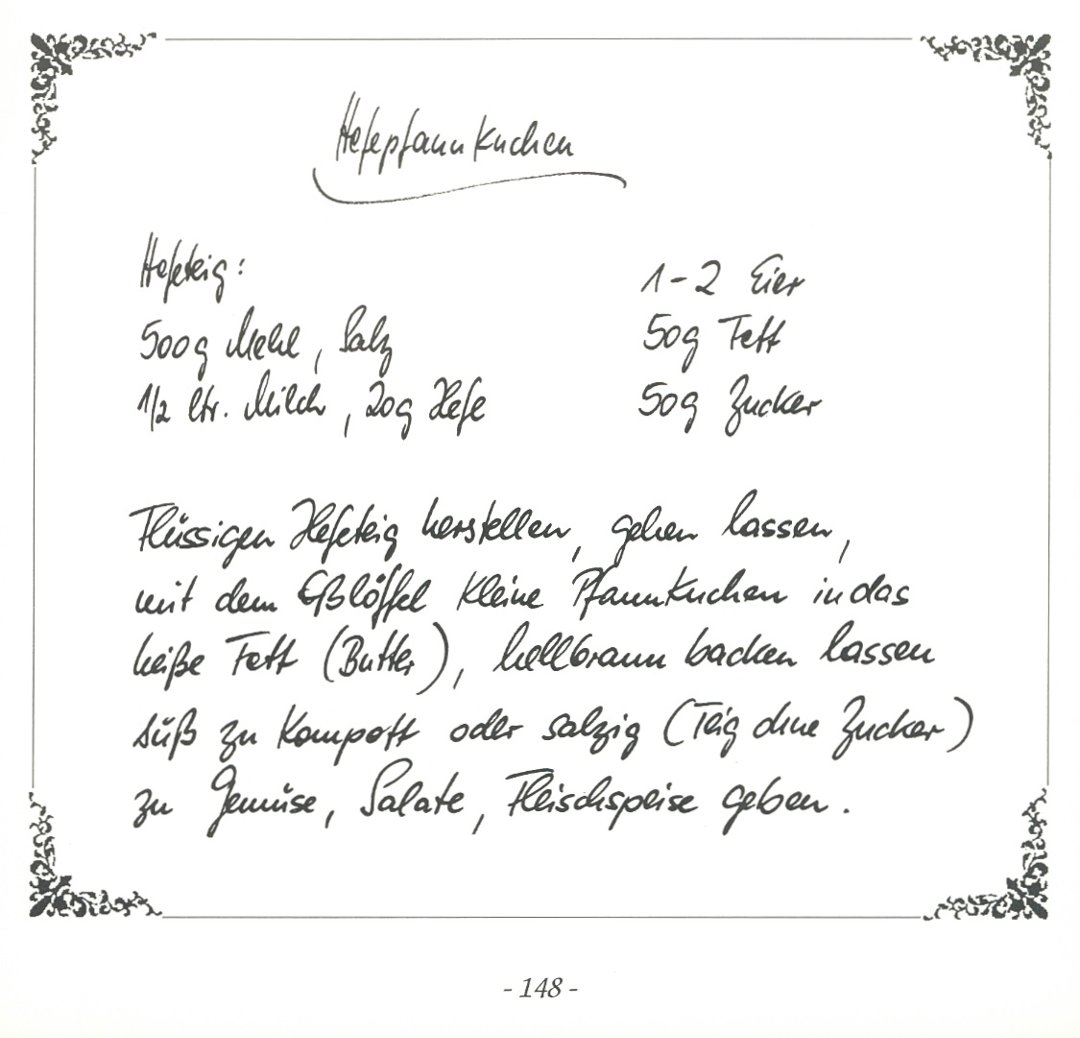 Hefepfannkuchen
Hefeteig:
500g Mehl, Salz
1/2 ltr. Milch, 20g Hefe
1-2 Eier
50g Fett
50g Zucker
Flüssigen Hefeteig herstellen, gehen lassen,
mit dem Eßlöffel kleine Pfannkuchen in das
heiße Fett (Butter), hellbraun backen lassen
süß zu Kompott oder salzig (Teig ohne Zucker)
zu Gemüse, Salate, Fleischspeise geben.
- 148 -